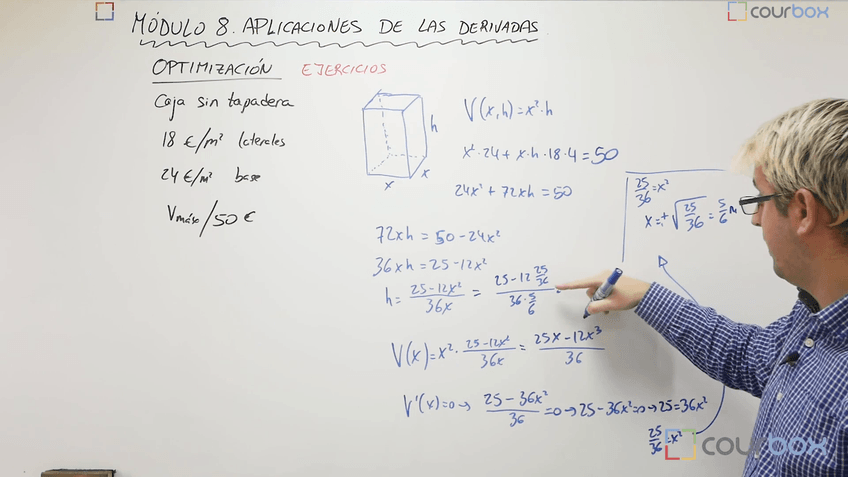 MÓDULO 8. APLICACIONES DE LAS DERIVADAS
courbox
OPTIMIZACIÓN EJERCICIOS
Caja sin tapadera
18 €/m² laterales
24 €/m² base
Vmáx/50 €
h
x
x
V(x,h)=x²·h
x²·24+x·h·18·4=50
24x²+72xh=50
72xh=50-24x²
36xh=25-12x²
h=(25-12x²)/(36x)=(25-12 25/36)/(36·5/6)
V(x)=x²·(25-12x²)/(36x)=(25x-12x³)/36
V'(x)=0→(25-36x²)/36=0→25-36x²=0→25=36x²
25/36=x²
25/36=x²
x=±√(25/36)=5/6 m
courbox